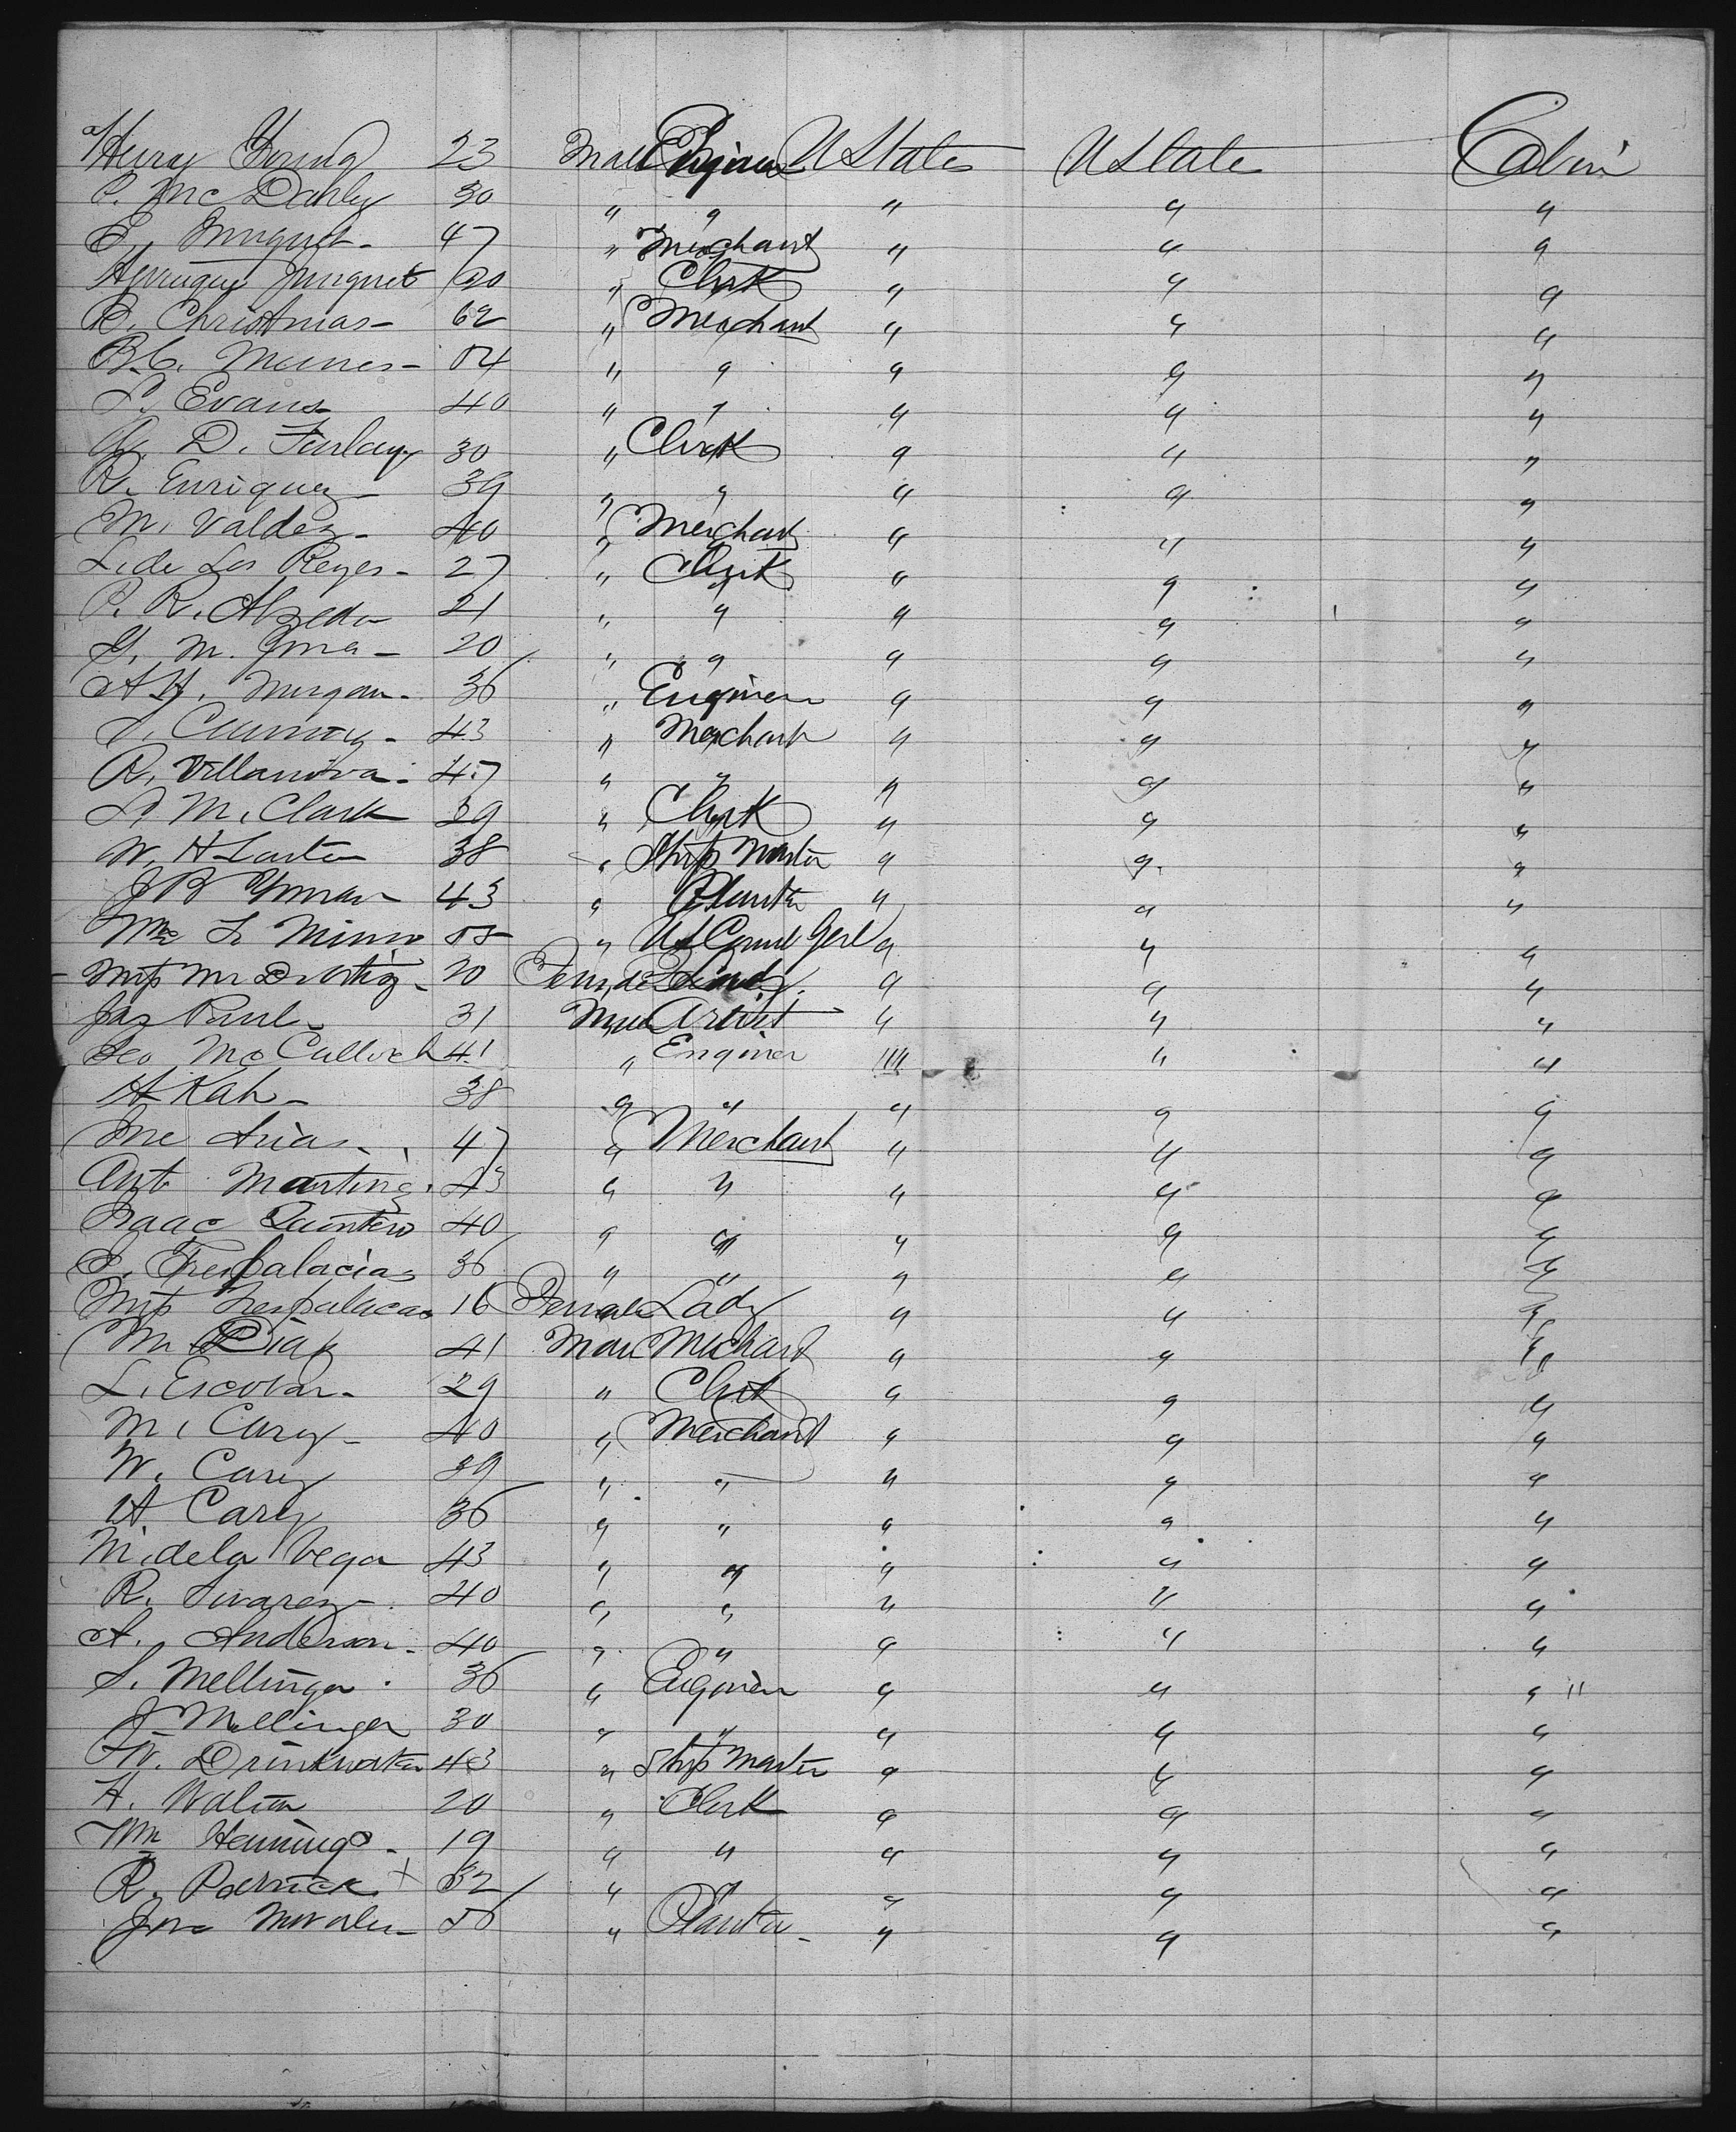 Henry Young 23 Male Engineer U States U State Cabin
P. McDahly 30 " " " " "
47 " Merchant " " "
20 " Clerk " " "
B. Christmas - 62 " Merchant " " "
B. C. 54 " " " " "
Evans - 40 " " " " "
D. Farlay 30 " Clerk " " "
R. Enriquez - 39 " " " " "
M. Valdez - 40 " Merchant " " "
L. de Los Reyes - 27 " Clerk " " "
P. R. 21 " " " " "
M. 20 " " " " "
A H. Morgan - 36 " Engineer " " "
43 " Merchant " " "
R. Villanova - 47 " " " " "
M. Clark 39 " Clerk " " "
W. H 38 " Ship Master " " "
J B 43 " Planter " " "
Wm L 55 " US Consul Genl " " "
20 Female Lady " " "
Jas Paul - 31 Male Artist " " "
Geo McCulloch 41 " Engineer " " "
A Kah - 38 " " " " "
Arias - 47 " Merchant " " "
Ant Martinez 43 " " " " "
Isaac Quintero 40 " " " " "
Trespalacias 36 " " " " "
Trespalacas 16 Female Lady " " "
M Diaz 41 Male Merchant " " "
L. Escobar - 29 " Clerk " " "
M. Cary - 40 " Merchant " " "
W. Cary 39 " " " " "
A Cary 36 " " " " "
M. dela Vega 43 " " " " "
R. Suvarez - 40 " " " " "
A. Anderson - 40 " " " " "
S. Mellinger 36 " Engineer " " "
J Mellinger 30 " " " " "
W. Drinkwater 43 " Ship Master " " "
H. Walton 20 " Clerk " " "
Wm Hennings - 19 " " " " "
R. + 32 " " " " "
Jose Morales - 56 " Planter - " " "